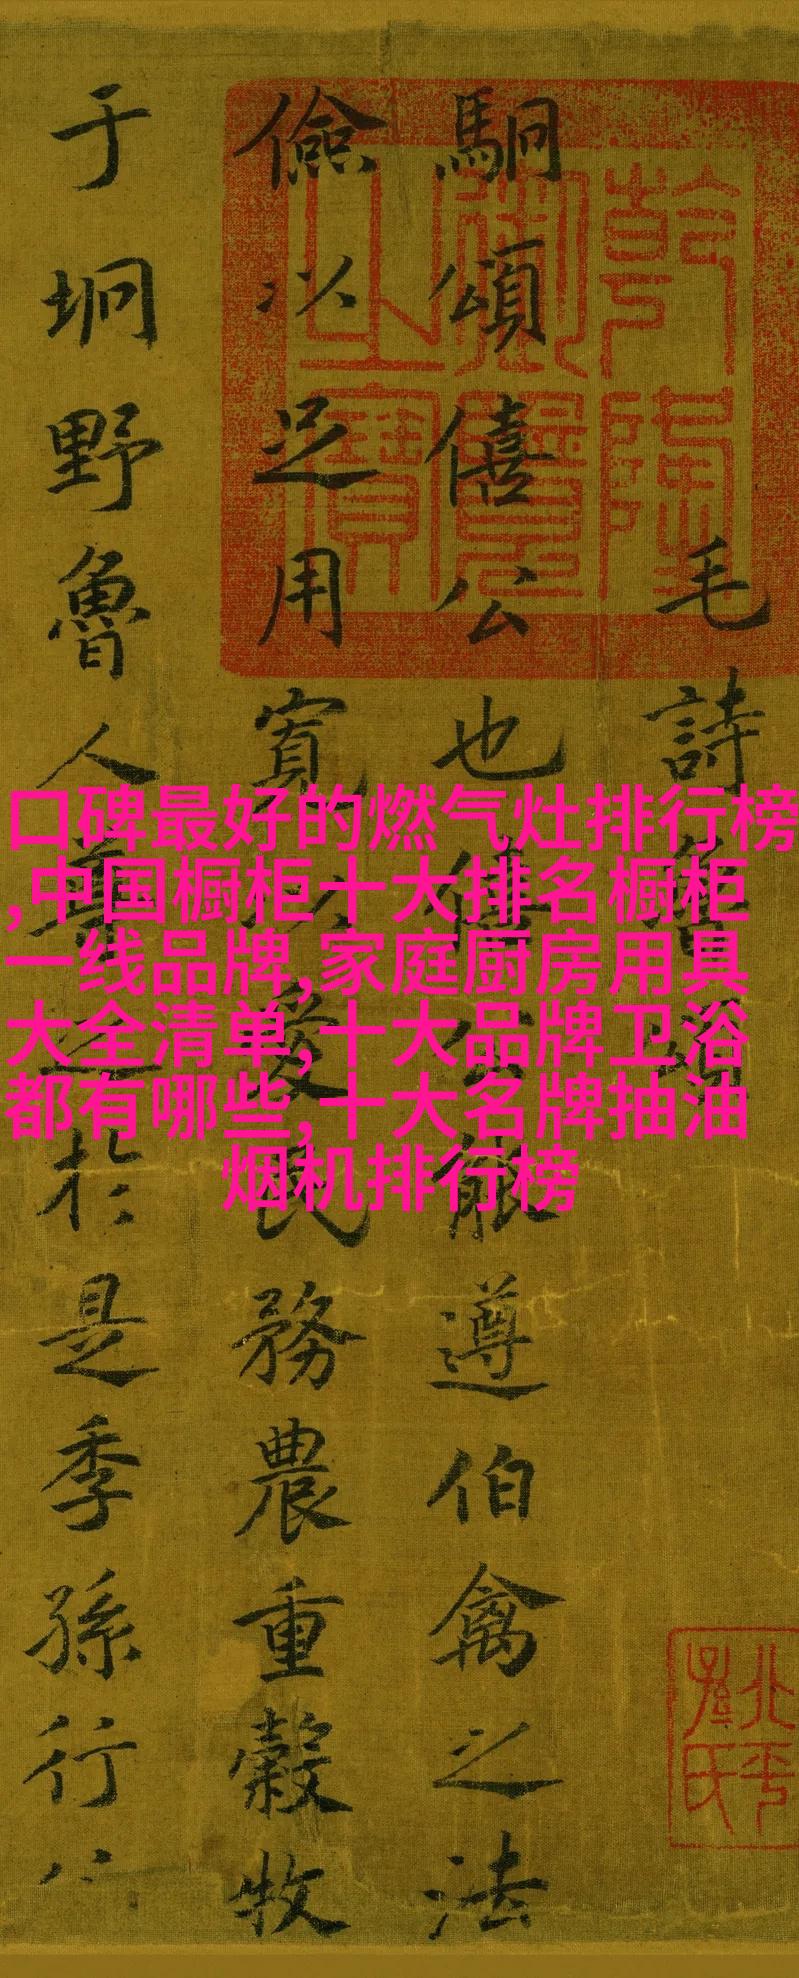 毛詩魯頌
駉頌僖公也僖公能遵伯禽之法
儉以足用寬以愛民務農重穀牧
于坰野魯人尊之於是季孫行
乾隆
御覽
之寶
北平
孫氏
口碑最好的燃气灶排行榜
,中国橱柜十大排名橱柜
一线品牌,家庭厨房用具
大全清单,十大品牌卫浴
都有哪些,十大名牌抽油
烟机排行榜